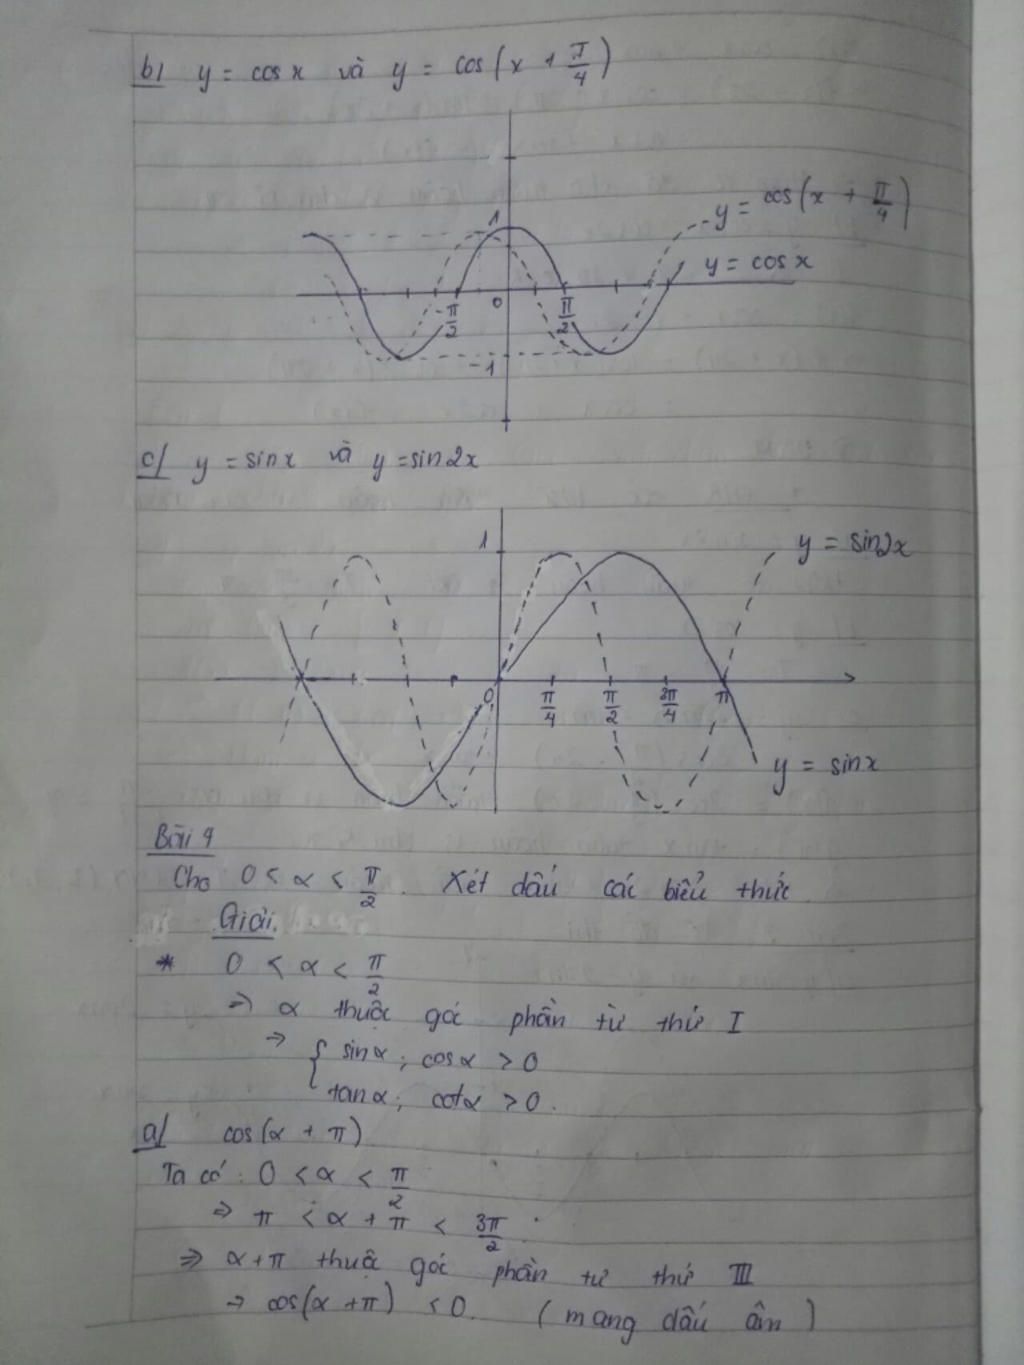 b/ y = cosx và y = cos(x + π/4)
y = cos(x + π/4)
1
y = cosx
0
-π/2
π/2
-1
c/ y = sinx và y = sin2x
1
y = sin2x
0
π/4
π/2
3π/4
π
y = sinx
Bài 9
Cho 0 < α < π/2. Xét dấu các biểu thức
Giải.
* 0 < α < π/2
⇒ α thuộc góc phần tử thứ I
⇒ { sinα; cosα > 0
tanα; cotα > 0.
a/ cos(α + π)
Ta có: 0 < α < π/2
⇒ π < α + π < 3π/2
⇒ α+π thuộc góc phần tư thứ III
→ cos(α+π) < 0. (mang dấu âm)